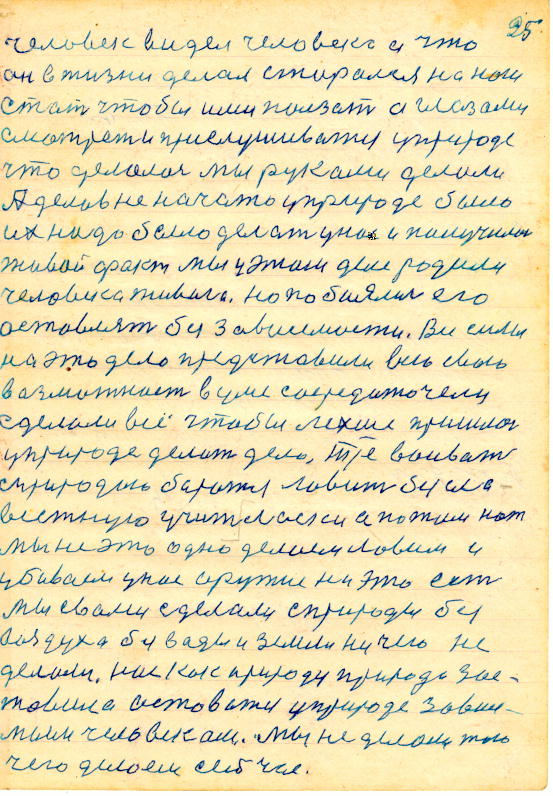 25
человек видел человека а что
он в жизни делал старался на ноги
стат чтобы ими ползат а глазами
смотрет и прислушиватся уприроде
что делалос мы руками делали
А делов не начато уприроде было
их надо было делат унас и получилос
живой факт мы уэтом деле родили
человека живога. но побоялис его
оставлят без зависемости. Все силы
на это дело представили всю свою
возможност вуме сосредоточели
сделали всё чтобы лехше пришлос
уприроде делат дело, Это воиват
сприродою баротся ловит бесла
вестную учитласки а потом нет
мы не это одно делаем ловим и
убиваем унас оружие на это ест
мы свами сделали сприроды без
воздуха без вады и земли ничего не
делали. нас как природу природа зас-
тавила остоватся уприроде завис-
мым человекам. Мы не делали того
чего делаем сейчас.